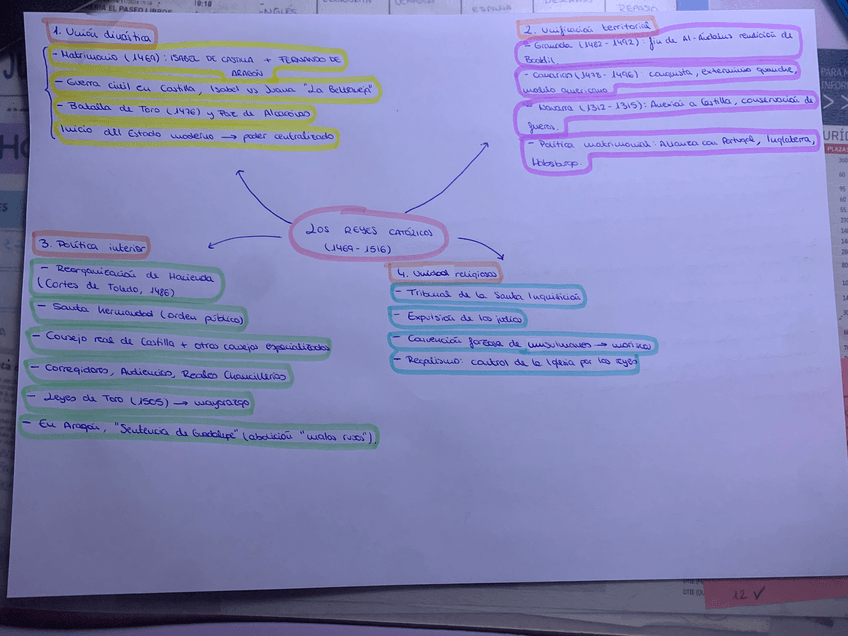 1. Unión dinástica
- Matrimonio (1469): ISABEL DE CASTILLA + FERNANDO DE
ARAGÓN
- Guerra civil en Castilla, Isabel vs Juana "La Beltraneja"
- Batalla de Toro (1476) y Paz de Alcaçovas
Inicio del Estado moderno → poder centralizado
2. Unificación territorial
- Granada (1482-1492): fin de Al-Ándalus rendición de
Boabdil.
- Canarias (1478-1496) conquista, exterminio guanche,
modelo americano
- Navarra (1312-1315): Anexión a Castilla, conservación de
fueros.
- Política matrimonial: Alianza con Portugal, Inglaterra,
Habsburgo.
LOS REYES CATÓLICOS
(1469-1516)
3. Política interior
- Reorganización de Hacienda
(Cortes de Toledo, 1486)
- Santa Hermandad (orden público)
- Consejo real de Castilla + otros consejos especializados
- Corregidores, Audiencias, Reales Chancillerías
- Leyes de Toro (1505) → mayorazgo
- En Aragón, "Sentencia de Guadalupe" (abolición "malos usos").
4. Unidad religiosa
- Tribunal de la Santa Inquisición
- Expulsión de los judíos
- Conversión forzosa de musulmanes → moriscos
- Regalismo: control de la Iglesia por los reyes
12 ✓